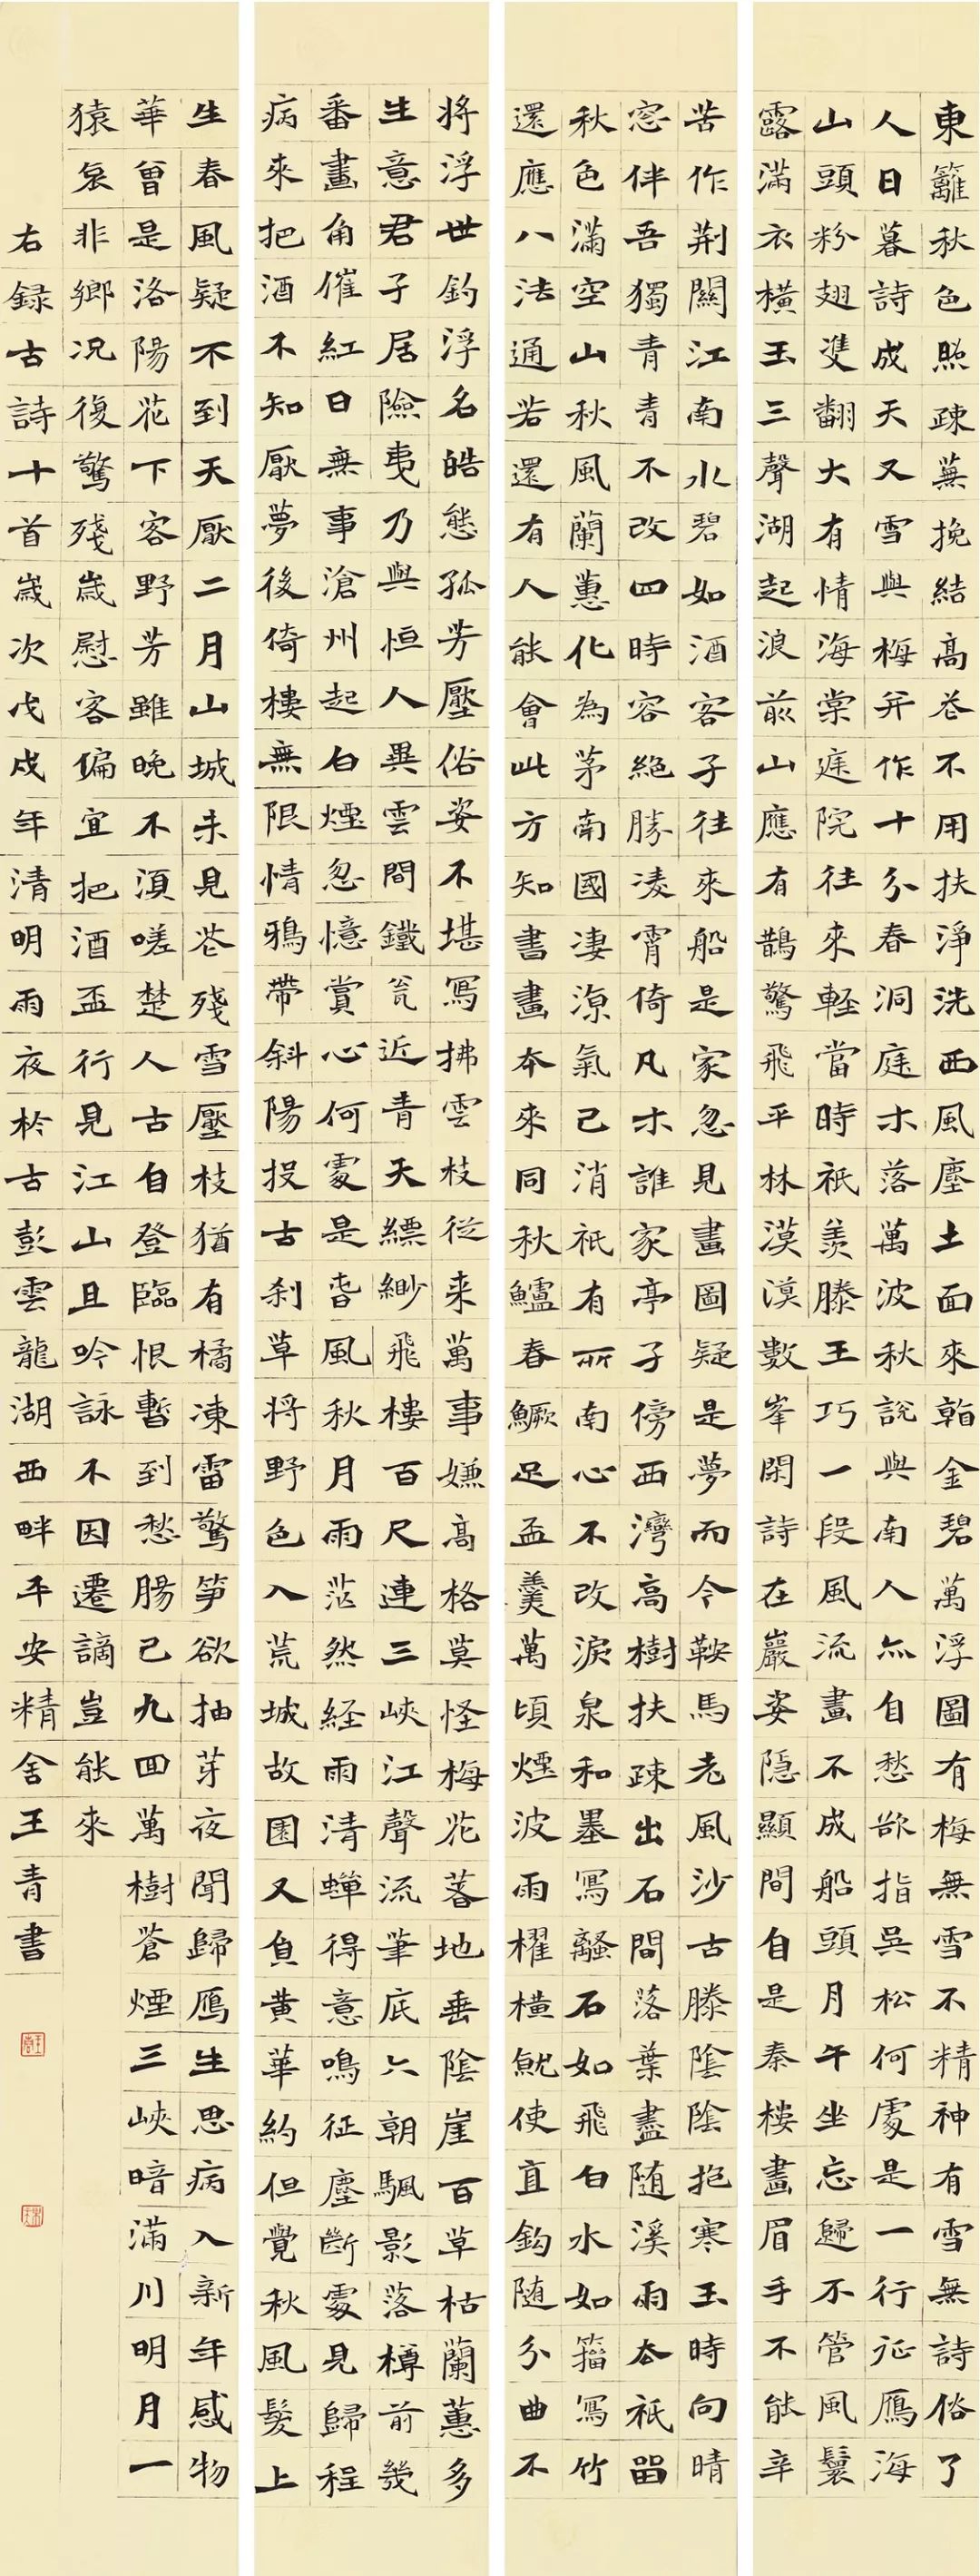 東籬秋色照疎蕪挽結高花不用扶淨洗西風塵土面來看金碧萬浮圖有梅無雪不精神有雪無詩俗了
人日暮詩成天又雪與梅并作十分春洞庭木落萬波秋說與南人亦自愁欲指吳松何處是一行征鴈海
山頭粉翅雙翻大有情海棠庭院往來輕當時祇羨滕王巧一段風流畫不成船頭月午坐忘歸不管風鬟
露滿衣橫玉三聲湖起浪前山應有鵲驚飛平林漠漠數峯閑詩在巖姿隱顯間自是秦樓畫眉手不能辛
苦作荆關江南水碧如酒客子往來船是家忽見畫圖疑是夢而今鞍馬老風沙古滕陰陰抱寒玉時向晴
窓伴吾獨青青不改四時容絕勝凌霄倚凡木誰家亭子傍西灣高樹扶疎出石間落葉盡隨溪雨去祇留
秋色滿空山秋風蘭蕙化為茅南國凄涼氣已消祇有所南心不改淚泉和墨寫騷石如飛白水如籀寫竹
還應八法通若還有人能會此方知書畫本來同秋鱸春鱖足盃羹萬頃煙波雨櫂橫就使直鈎隨分曲不
將浮世釣浮名皓態孤芳壓俗姿不堪寫拂雲枝從来萬事嫌高格莫怪梅花落地垂陰崖百草枯蘭蕙多
生意君子居險夷乃與恒人異雲間鐵瓮近青天縹緲飛樓百尺連三峽江聲流筆底六朝颿影落樽前幾
番畫角催紅日無事滄州起白煙忽憶賞心何處是春風秋月雨茫然経雨清蟬得意鳴征塵斷處見歸程
病來把酒不知厭夢後倚樓無限情鴉帶斜陽投古刹草將野色入荒城故園又負黄華約但覺秋風髮上
生春風疑不到天厭二月山城未見花殘雪壓枝猶有橘凍雷驚笋欲抽芽夜聞歸鴈生思病入新年感物
華曾是洛陽花下客野芳雖晚不須嗟楚人古自登臨恨暫到愁腸已九回萬樹蒼煙三峽暗滿川明月一
猿哀非鄉況復驚殘歲慰客偏宜把酒盃行見江山且吟詠不因遷謫豈能來
右録古詩十首歲次戊戌年清明雨夜於古彭雲龍湖西畔平安精舍王青書